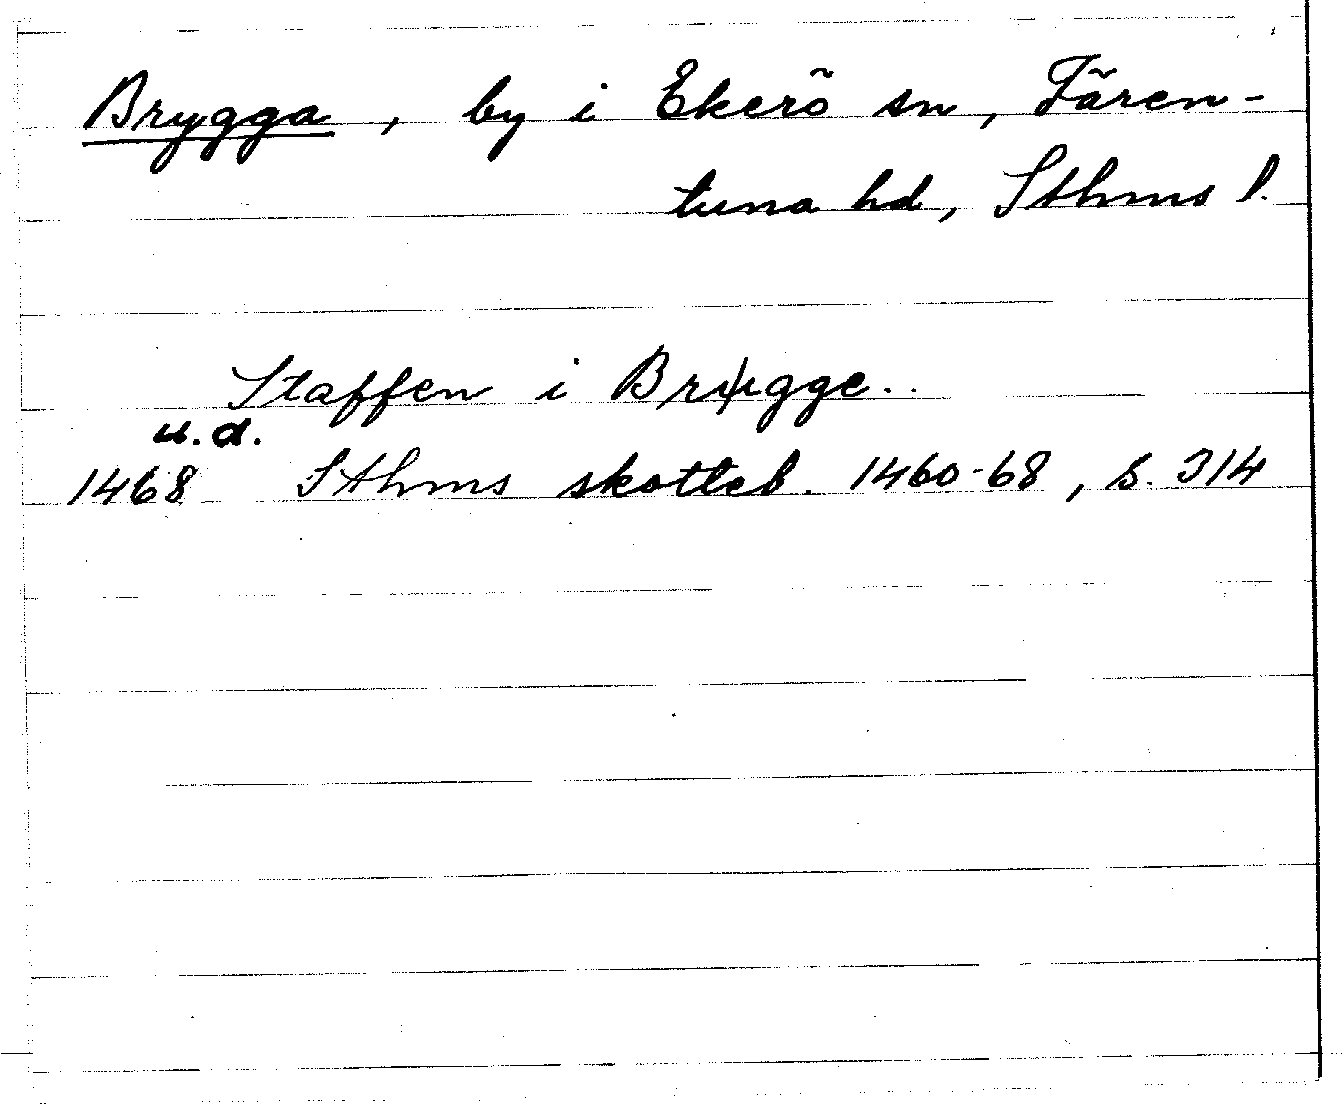 Brygga, by i Ekerö sn, Fären-
tuna hd, Sthms l.
Staffen i Brygge..
u.d.
1468 Sthms skotteb. 1460-68, s. 314